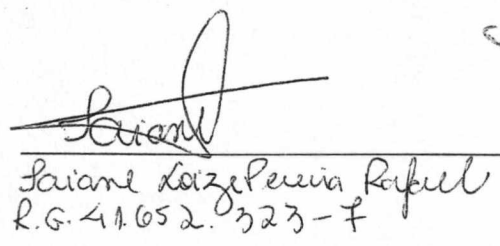 Saiane
Saiane Loize Pereira Rafael
R.G. 41.652.323-7